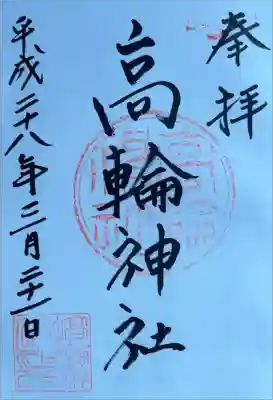 奉拝
高輪神社
平成二十八年三月二十一日